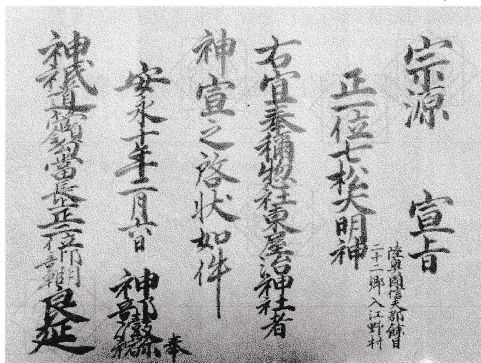 宗源 宣旨
正一位七松大明神
陸奥國信夫郡餘目
二十二郷入江野村
右宜奉稱惣社東屋沼神社者
神宣之啓状如件
安永十年二月六日 神部 奉
神祇道管領勾當長正三位 良延